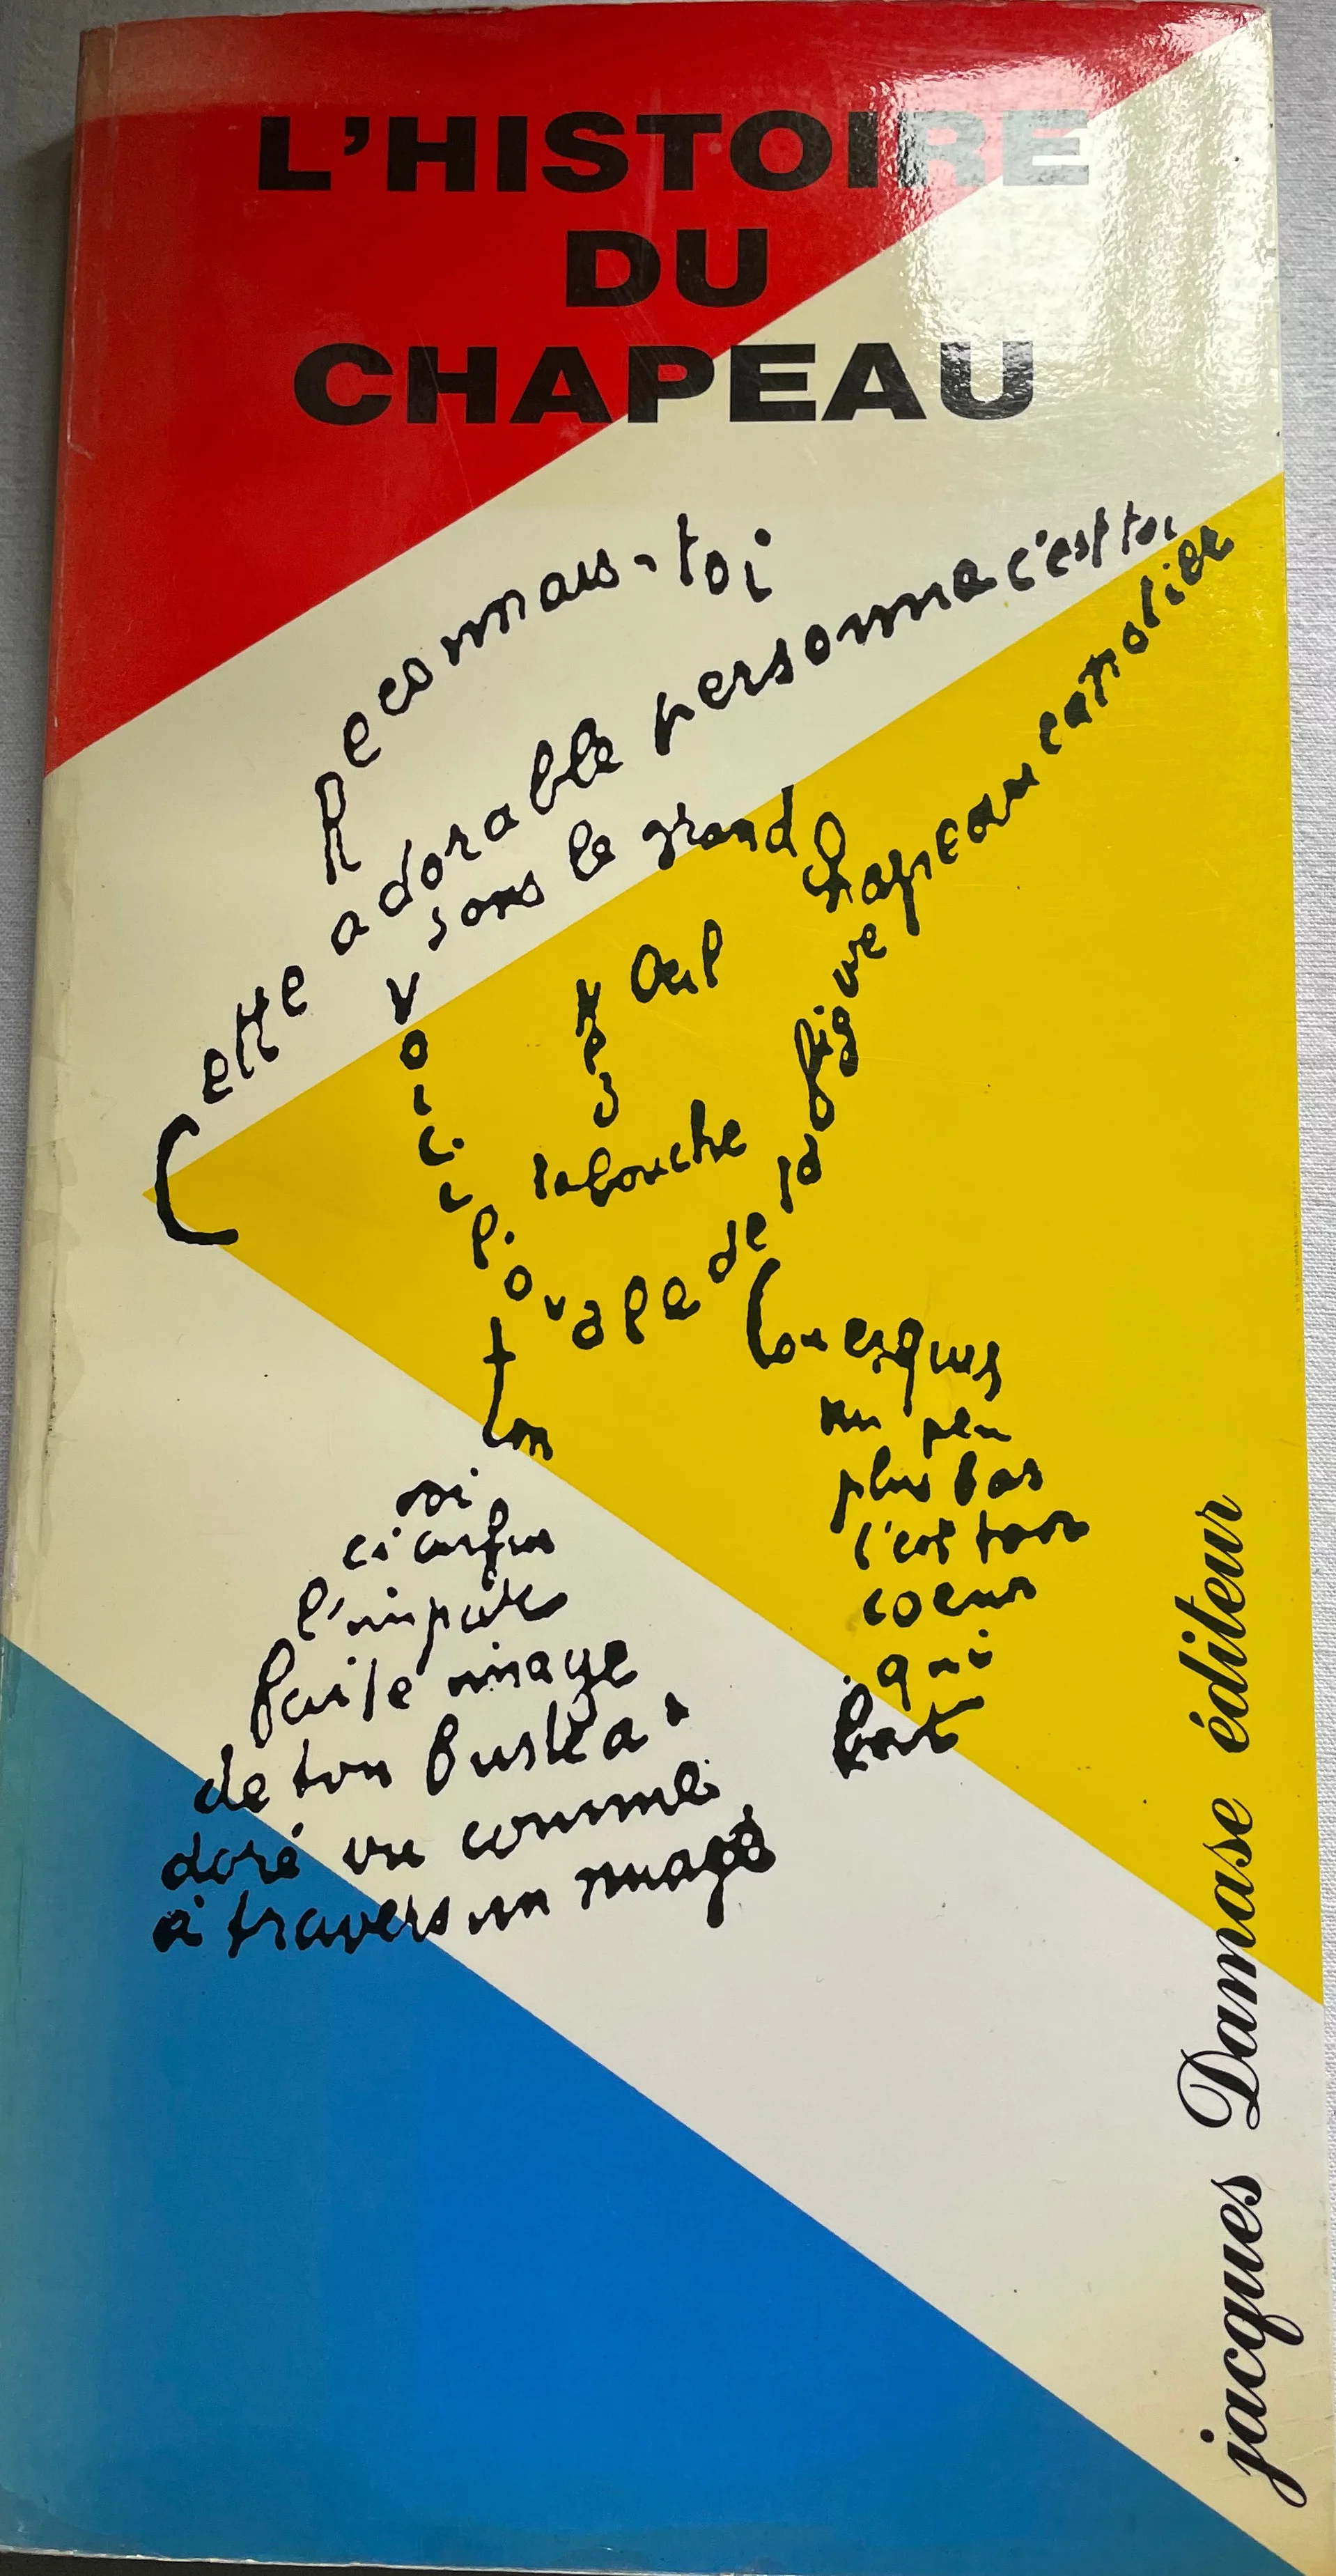 L'HISTOIRE
DU
CHAPEAU
Reconnais-toi
Cette adorable personne c'est toi
sous le grand chapeau canotier
Oeil
Nez
la bouche
Voici l'ovale de ta figure
Ton
Cou exquis
un peu
plus bas
c'est ton
coeur
qui
bat
voi
ci enfin
l'impar
faite image
de ton buste a
doré vu comme
à travers un nuage
jacques Damase éditeur